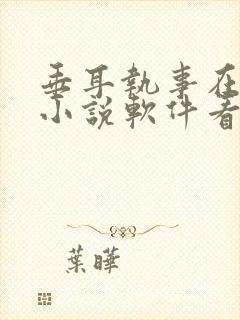 垂耳執事在
小說軟件看
葉曄